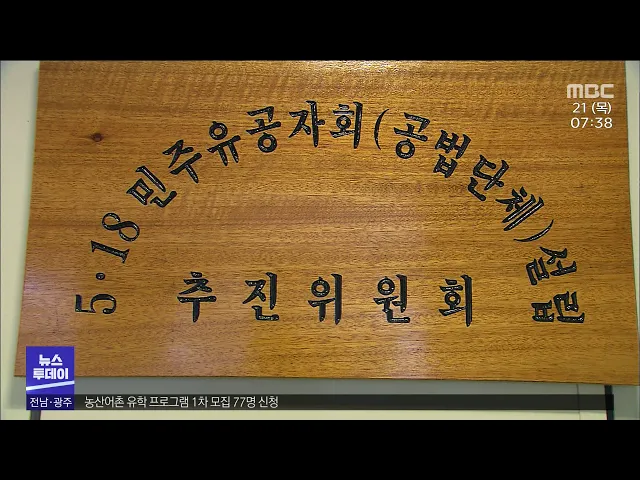 5·18민주유공자회(공법단체)설립
추진위원회
MBC
21 (목)
07:38
뉴스
투데이
전남·광주
농산어촌 유학 프로그램 1차 모집 77명 신청